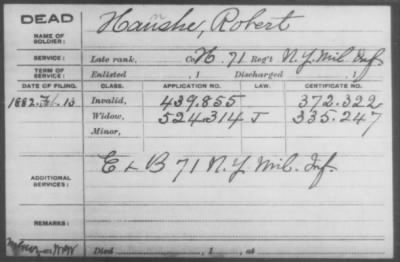 DEAD
NAME OF SOLDIER: Hanshe, Robert
n
SERVICE: Late rank, Co. H. 71 Reg't N.Y. Mil. Inf.
TERM OF SERVICE: Enlisted , 1 Discharged , 1
DATE OF FILING. CLASS. APPLICATION NO. LAW. CERTIFICATE NO.
1882. 13 Invalid, 439.855 372.322
Widow, 524.314 J 335.247
Minor,
ADDITIONAL SERVICES: E & B 71 N.Y. Mil. Inf.
REMARKS:
Died , 1 , at